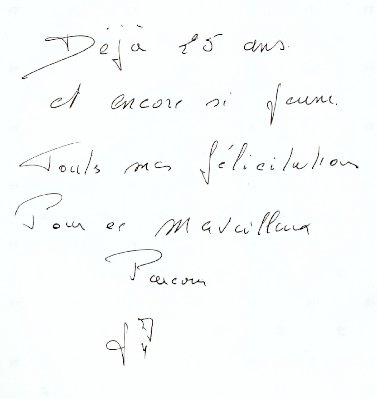 Déjà 25 ans
et encore si jeune.
Toutes mes félicitations
Pour ce Merveilleux
Parcours